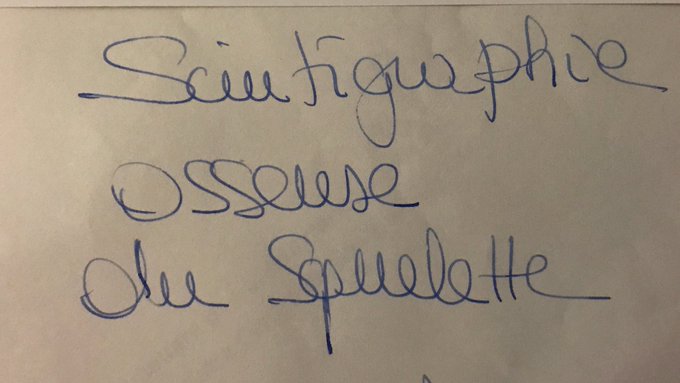 Scintigraphie
osseuse
du Squelette